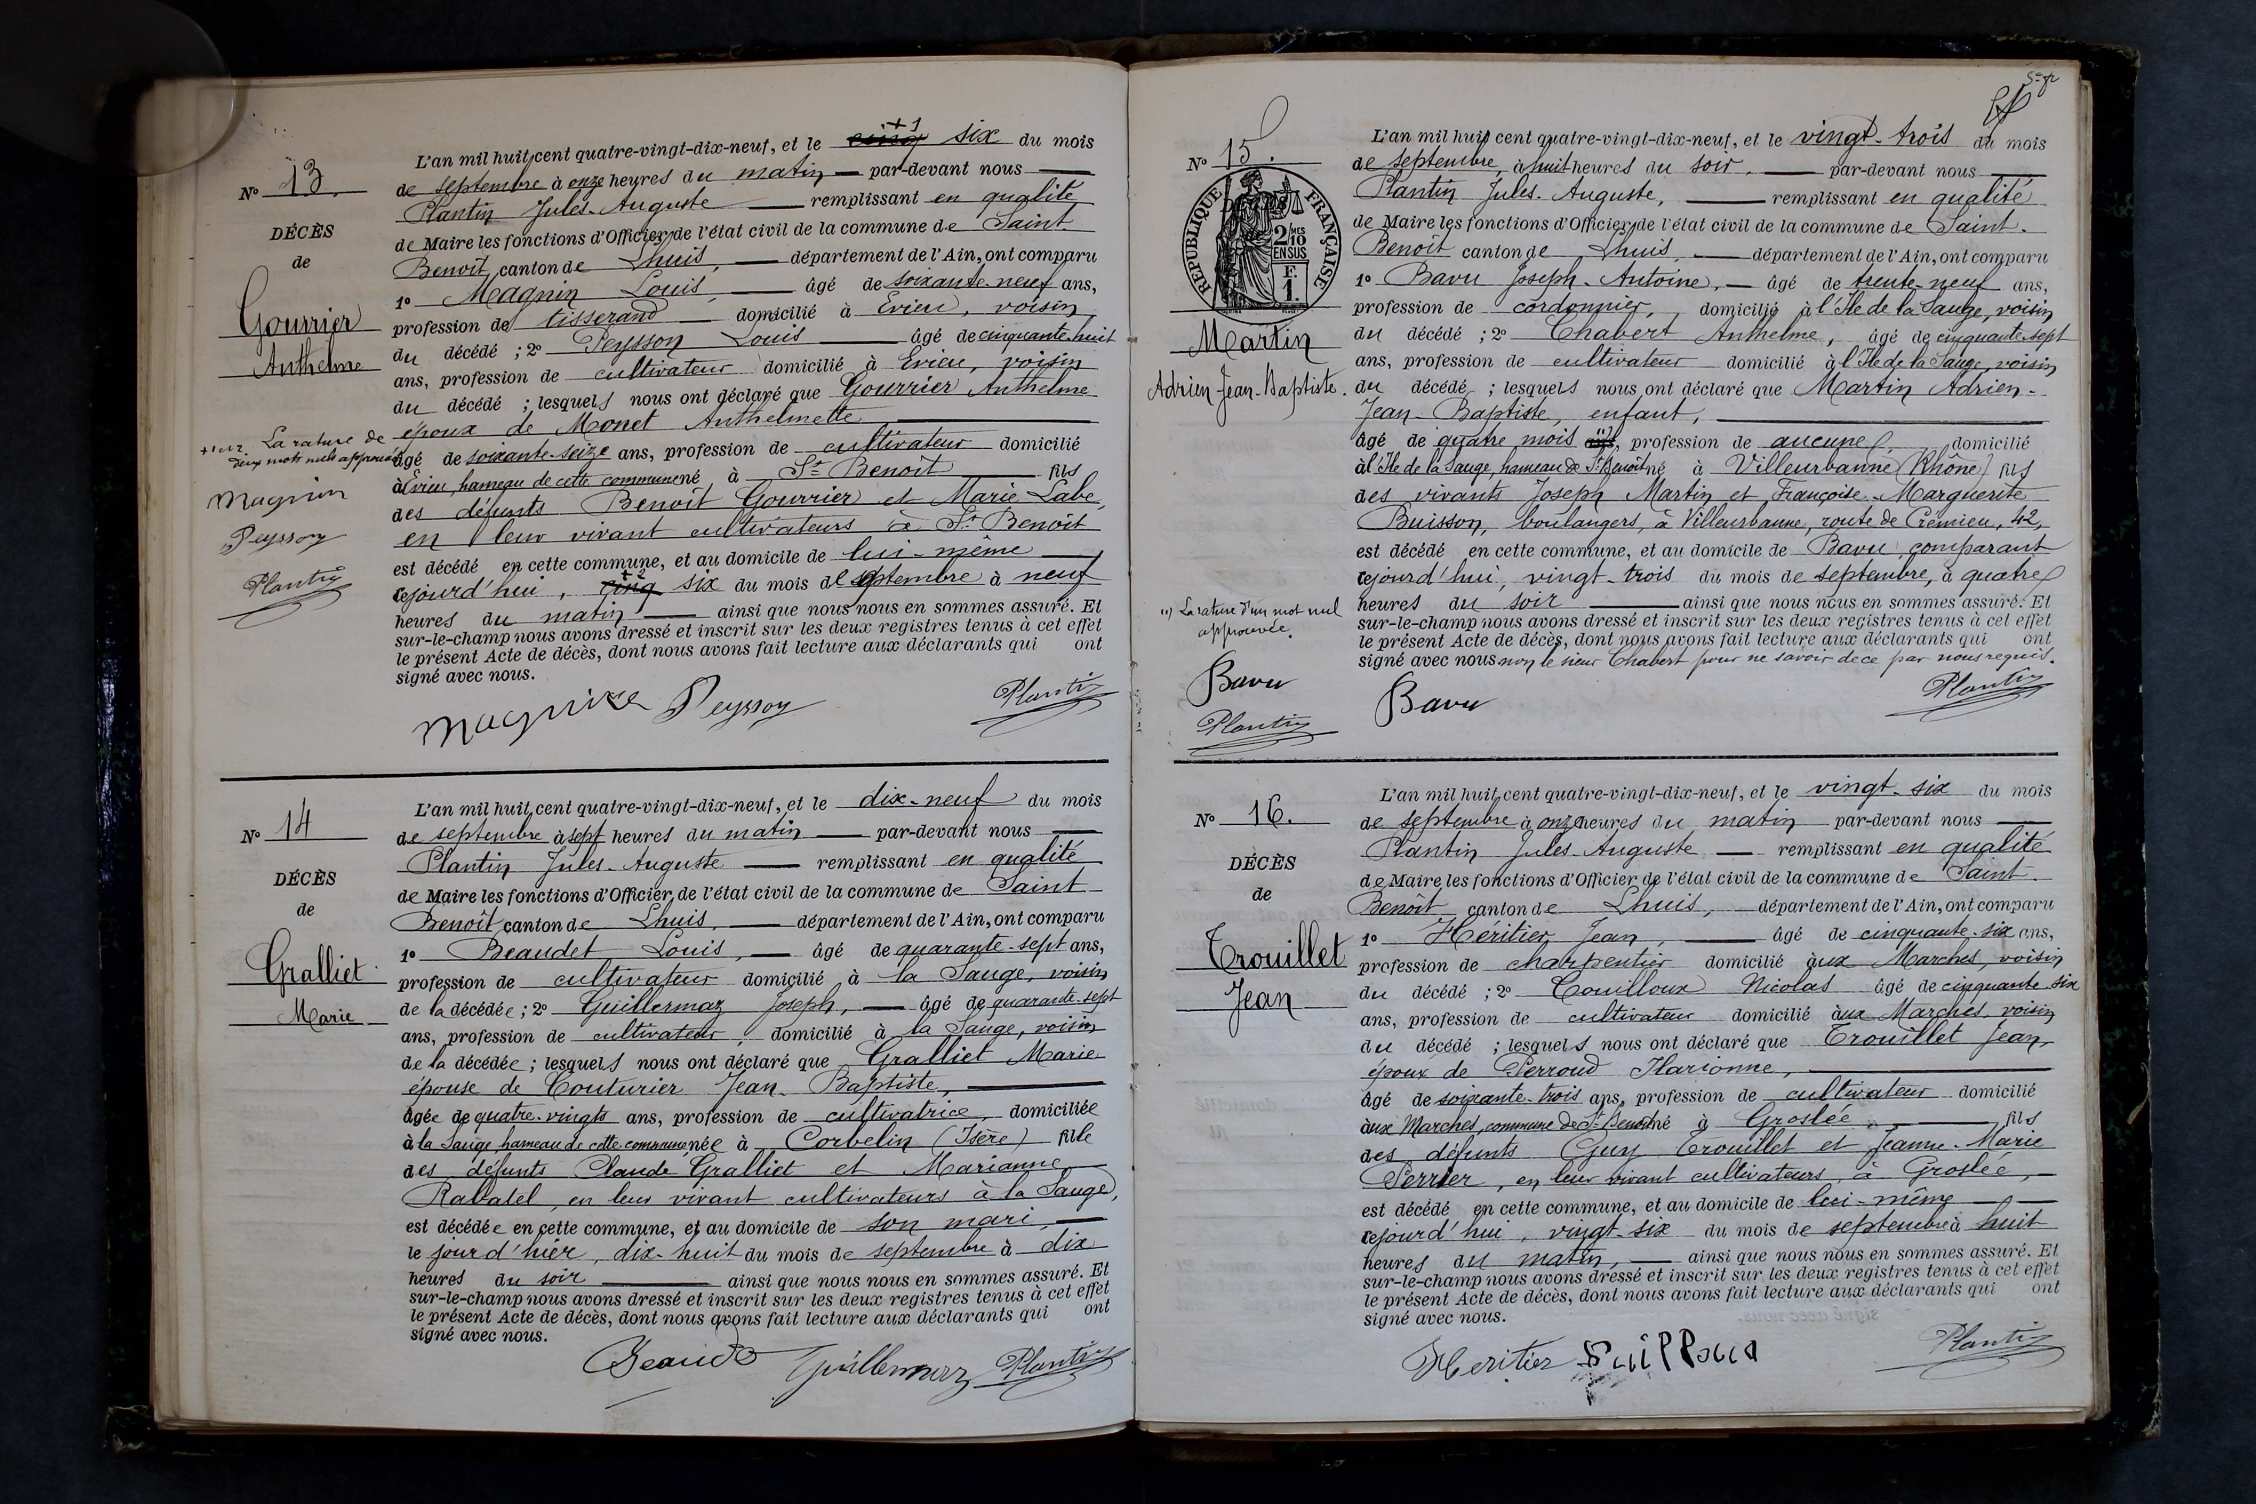 No 13.
DÉCÈS
de
Gourrier
Anthelme
L'an mil huit cent quatre-vingt-dix-neuf, et le cinq +1 six du mois
de septembre à onze heures du matin — par-devant nous
Plantin Jules-Auguste — remplissant en qualité
de Maire les fonctions d'Officier de l'état civil de la commune de Saint-
Benoît, canton de Lhuis, — département de l'Ain, ont comparu
1o Magnin Louis, — âgé de soixante-neuf ans,
profession de tisserand — domicilié à Evieu, voisin
du décédé ; 2o Peysson Louis — âgé de cinquante-huit
ans, profession de cultivateur domicilié à Evieu, voisin
du décédé ; lesquels nous ont déclaré que Gourrier Anthelme
époux de Monet Anthelmette
âgé de soixante-seize ans, profession de cultivateur domicilié
à Evieu, hameau de cette commune né à St Benoît — fils
des défunts Benoît Gourrier et Marie Labe,
en leur vivant cultivateurs à St Benoît
est décédé en cette commune, et au domicile de lui-même
cejourd'hui, cinq +2 six du mois de septembre à neuf
heures du matin — ainsi que nous nous en sommes assuré. Et
sur-le-champ nous avons dressé et inscrit sur les deux registres tenus à cet effet
le présent Acte de décès, dont nous avons fait lecture aux déclarants qui ont
signé avec nous.
+1 et 2 La rature de
deux mots nuls approuvée
Magnin
Peysson
Plantin
Magnin Peysson Plantin
No 14
DÉCÈS
de
Gralliet
Marie
L'an mil huit cent quatre-vingt-dix-neuf, et le dix-neuf du mois
de septembre à sept heures du matin — par-devant nous
Plantin Jules-Auguste — remplissant en qualité
de Maire les fonctions d'Officier de l'état civil de la commune de Saint-
Benoît canton de Lhuis, — département de l'Ain, ont comparu
1o Beaudet Louis, — âgé de quarante-sept ans,
profession de cultivateur domicilié à la Sauge, voisin
de la décédée ; 2o Guillermaz Joseph, — âgé de quarante-sept
ans, profession de cultivateur, domicilié à la Sauge, voisin
de la décédée ; lesquels nous ont déclaré que Gralliet Marie
épouse de Couturier Jean-Baptiste,
âgée de quatre-vingts ans, profession de cultivatrice, domiciliée
à la Sauge, hameau de cette commune, née à Corbelin (Isère) fille
des défunts Claude Gralliet et Marianne
Rabatel, en leur vivant cultivateurs à la Sauge,
est décédée en cette commune, et au domicile de son mari,
le jour d'hier, dix-huit du mois de septembre à dix
heures du soir — ainsi que nous nous en sommes assuré. Et
sur-le-champ nous avons dressé et inscrit sur les deux registres tenus à cet effet
le présent Acte de décès, dont nous avons fait lecture aux déclarants qui ont
signé avec nous.
Beaudet Guillermaz Plantin
No 15.
RÉPUBLIQUE FRANÇAISE
2/10 MES
EN SUS
F.
1.
Martin
Adrien-Jean-Baptiste.
L'an mil huit cent quatre-vingt-dix-neuf, et le vingt-trois du mois
de septembre, à huit heures du soir, — par-devant nous
Plantin Jules-Auguste, — remplissant en qualité
de Maire les fonctions d'Officier de l'état civil de la commune de Saint-
Benoît canton de Lhuis, — département de l'Ain, ont comparu
1o Bavu Joseph-Antoine, — âgé de trente-neuf ans,
profession de cordonnier, domicilié à l'Ile de la Sauge, voisin
du décédé ; 2o Chabert Anthelme, âgé de cinquante-sept
ans, profession de cultivateur domicilié à l'Ile de la Sauge, voisin
du décédé ; lesquels nous ont déclaré que Martin Adrien-
Jean-Baptiste, enfant,
âgé de quatre mois ans (1), profession de aucune, domicilié
à l'Ile de la Sauge, hameau de St Benoît né à Villeurbanne (Rhône) fils
des vivants Joseph Martin et Françoise-Marguerite
Buisson, boulangers, à Villeurbanne, route de Crémieu, 42,
est décédé en cette commune, et au domicile de Bavu, comparant
cejourd'hui, vingt-trois du mois de septembre, à quatre
heures du soir — ainsi que nous nous en sommes assuré. Et
sur-le-champ nous avons dressé et inscrit sur les deux registres tenus à cet effet
le présent Acte de décès, dont nous avons fait lecture aux déclarants qui ont
signé avec nous non le sieur Chabert pour ne savoir de ce par nous requis.
(1) La rature d'un mot nul
approuvée.
Bavu
Plantin
Bavu Plantin
No 16.
DÉCÈS
de
Trouillet
Jean
L'an mil huit cent quatre-vingt-dix-neuf, et le vingt-six du mois
de septembre à onze heures du matin par-devant nous
Plantin Jules-Auguste — remplissant en qualité
de Maire les fonctions d'Officier de l'état civil de la commune de Saint-
Benoît canton de Lhuis, — département de l'Ain, ont comparu
1o Héritier Jean, — âgé de cinquante-six ans,
profession de charpentier domicilié aux Marches, voisin
du décédé ; 2o Touilloux Nicolas âgé de cinquante-six
ans, profession de cultivateur domicilié aux Marches, voisin
du décédé ; lesquels nous ont déclaré que Trouillet Jean,
époux de Perroud Ilarionne,
âgé de soixante-trois ans, profession de cultivateur domicilié
aux Marches, commune de St Benoît né à Groslée — fils
des défunts Guy Trouillet et Jeanne-Marie
Perrier, en leur vivant cultivateurs, à Groslée,
est décédé en cette commune, et au domicile de lui-même
cejourd'hui, vingt-six du mois de septembre à huit
heures du matin, — ainsi que nous nous en sommes assuré. Et
sur-le-champ nous avons dressé et inscrit sur les deux registres tenus à cet effet
le présent Acte de décès, dont nous avons fait lecture aux déclarants qui ont
signé avec nous.
Heritier Plantin